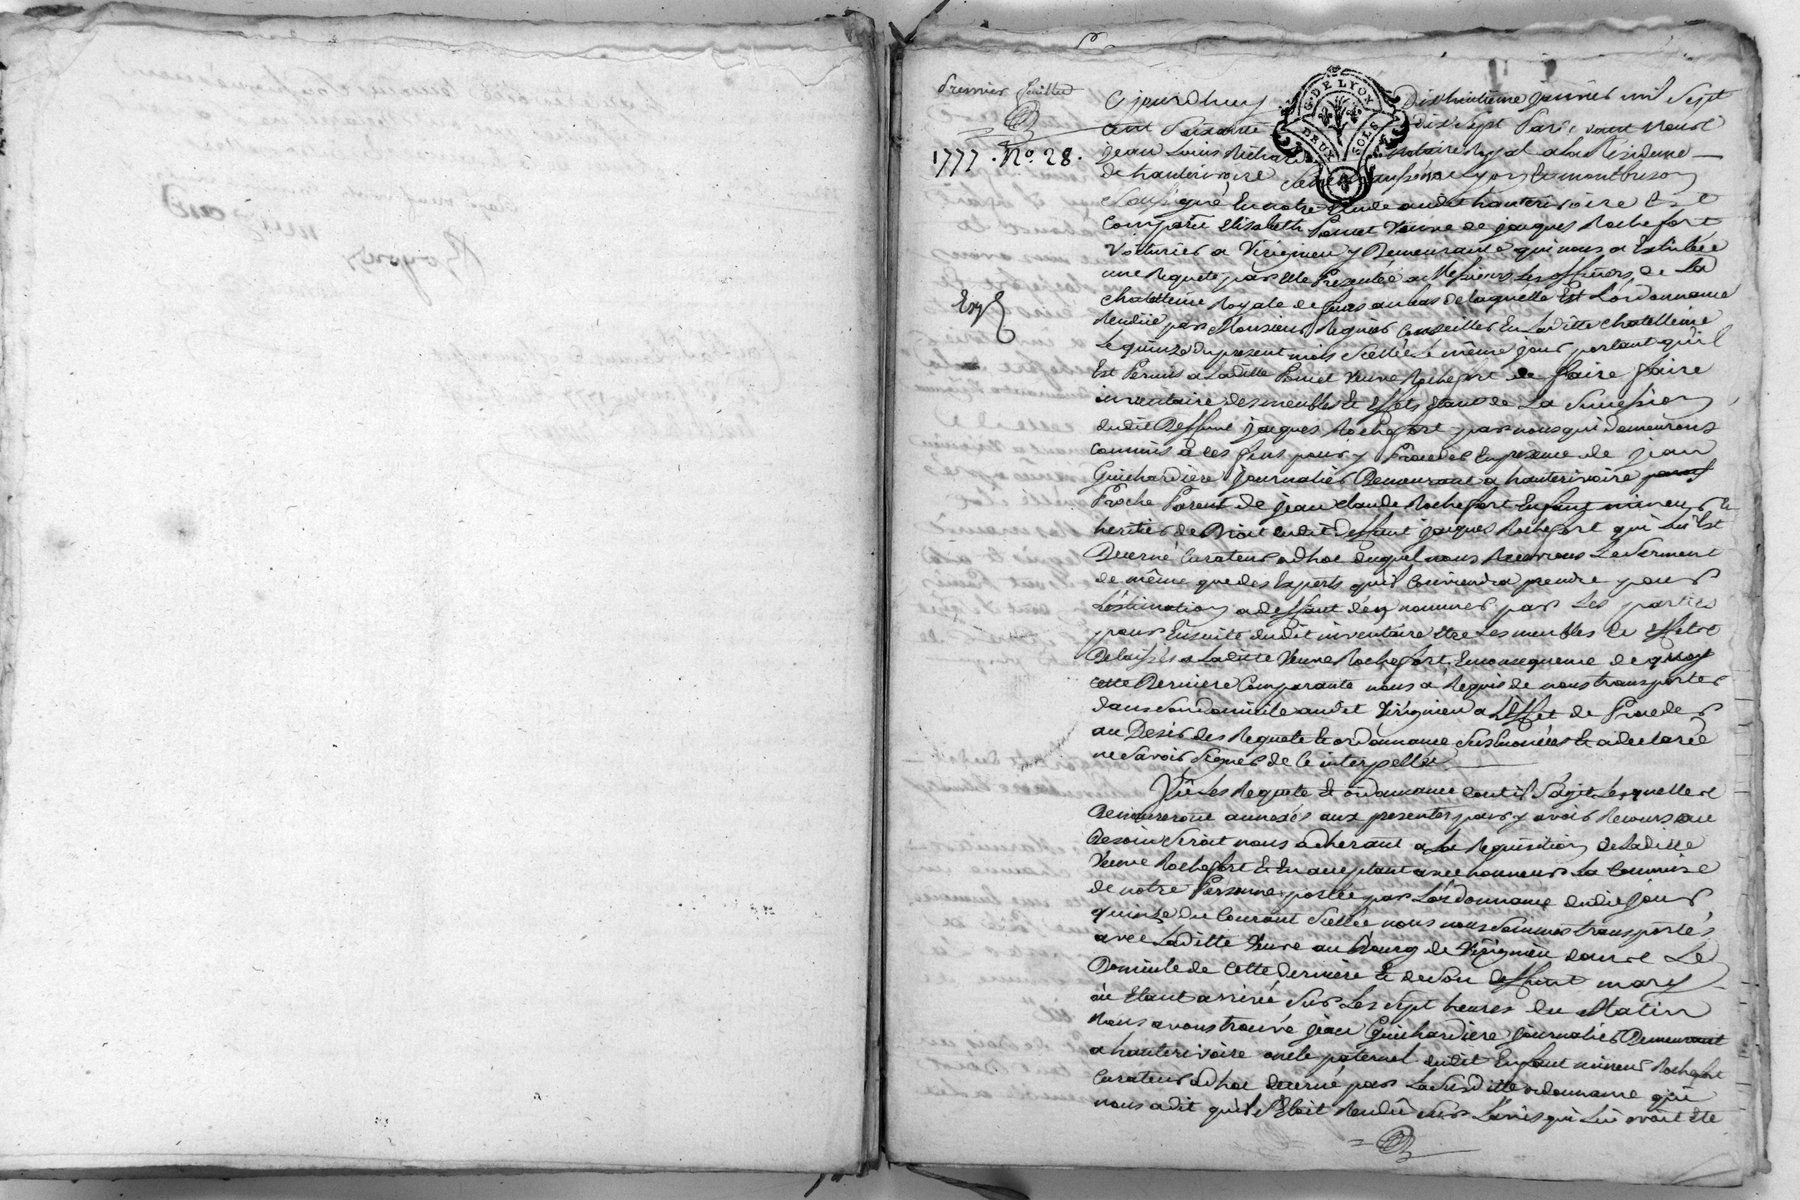 Premier feuillet
1777 . N°. 28.
Exp
G. DE LYON
DEUX SOLS
Cejourdhuy Dixhuitieme janvier mil Sept
Cent Soixante dix Sept Pardevant Nous
jean Louis Richard Notaire Royal a la Residence
de hauterivoire Lyon Et montbrison
Soussigné En notre Etude audit hauterivoire Est
Comparüe Elisabeth Poncet Veuve de jacques Rochefort
Voiturier a Virigneu y Demeurante qui nous a Exhibée
une Requete par Elle Presentée a Messieurs Les officiers de La
Chatelleine Royale de au bas de laquelle Est L'ordonnance
Rendüe par Monsieur Regnier Conseiller En Laditte Chatelleine
Le quinze du present mois Scellée le même jour portant qu'il
Est Permis a Laditte Poncet Veuve Rochefort de faire faire
inventaire des meubles Et Effets Etant de La Succession
dudit Deffunt jacques Rochefort par nous qui demeurons
Commis a ces fins pour y Proceder En presence de jean
Guichardiere journalier Demeurant a hauterivoire
Proche Parent de jean Claude Rochefort Enfant mineur Et
heritier de Droit dudit Deffunt jacques Rochefort qui Lui Est
Decerné Curateur adhoc duquel nous Recevrons Le Serment
de même que des Experts qu'il Conviendra prendre pour
L'estimation a deffaut d'en nommer par Les parties
pour Ensuite dudit inventaire Etre Les meubles Et Effets
Delaissés a Laditte Veuve Rochefort, En consequence de quoy
Cette Derniere Comparante nous a Requis de nous transporter
dans Son Domicile audit Virigneu a L'Effet de Proceder
au Desir des Requete Et ordonnance Susenoncées Et a declarée
ne Savoir Signer de Ce interpellée.
Vü Les Requete Et ordonnance dont il S'agit Lesquelles
Demeureront annexés aux presentes pour y avoir Recours au
Besoin Seroit nous adherant a La Requisition de Laditte
Veuve Rochefort Et En acceptant avec honneur La Commise
de notre Personne portée par L'ordonnance dudit jour
quinze du Courant Scellée nous nous Sommes transportés
avec Laditte Veuve au Bourg de Virigneu dans Le
Domicile de Cette derniere Et de Son deffunt mary
où Etant arrivé Sur Les Sept heures du Matin
Nous avons trouvé jean Guichardiere journalier Demeurant
a hauterivoire oncle paternel dudit Enfant mineur Rochefort
Curateur adhoc decerné par La Susditte ordonnance qui
nous a dit qu'il S'Etoit Rendû Sur L'avis qui Lui avoit Eté